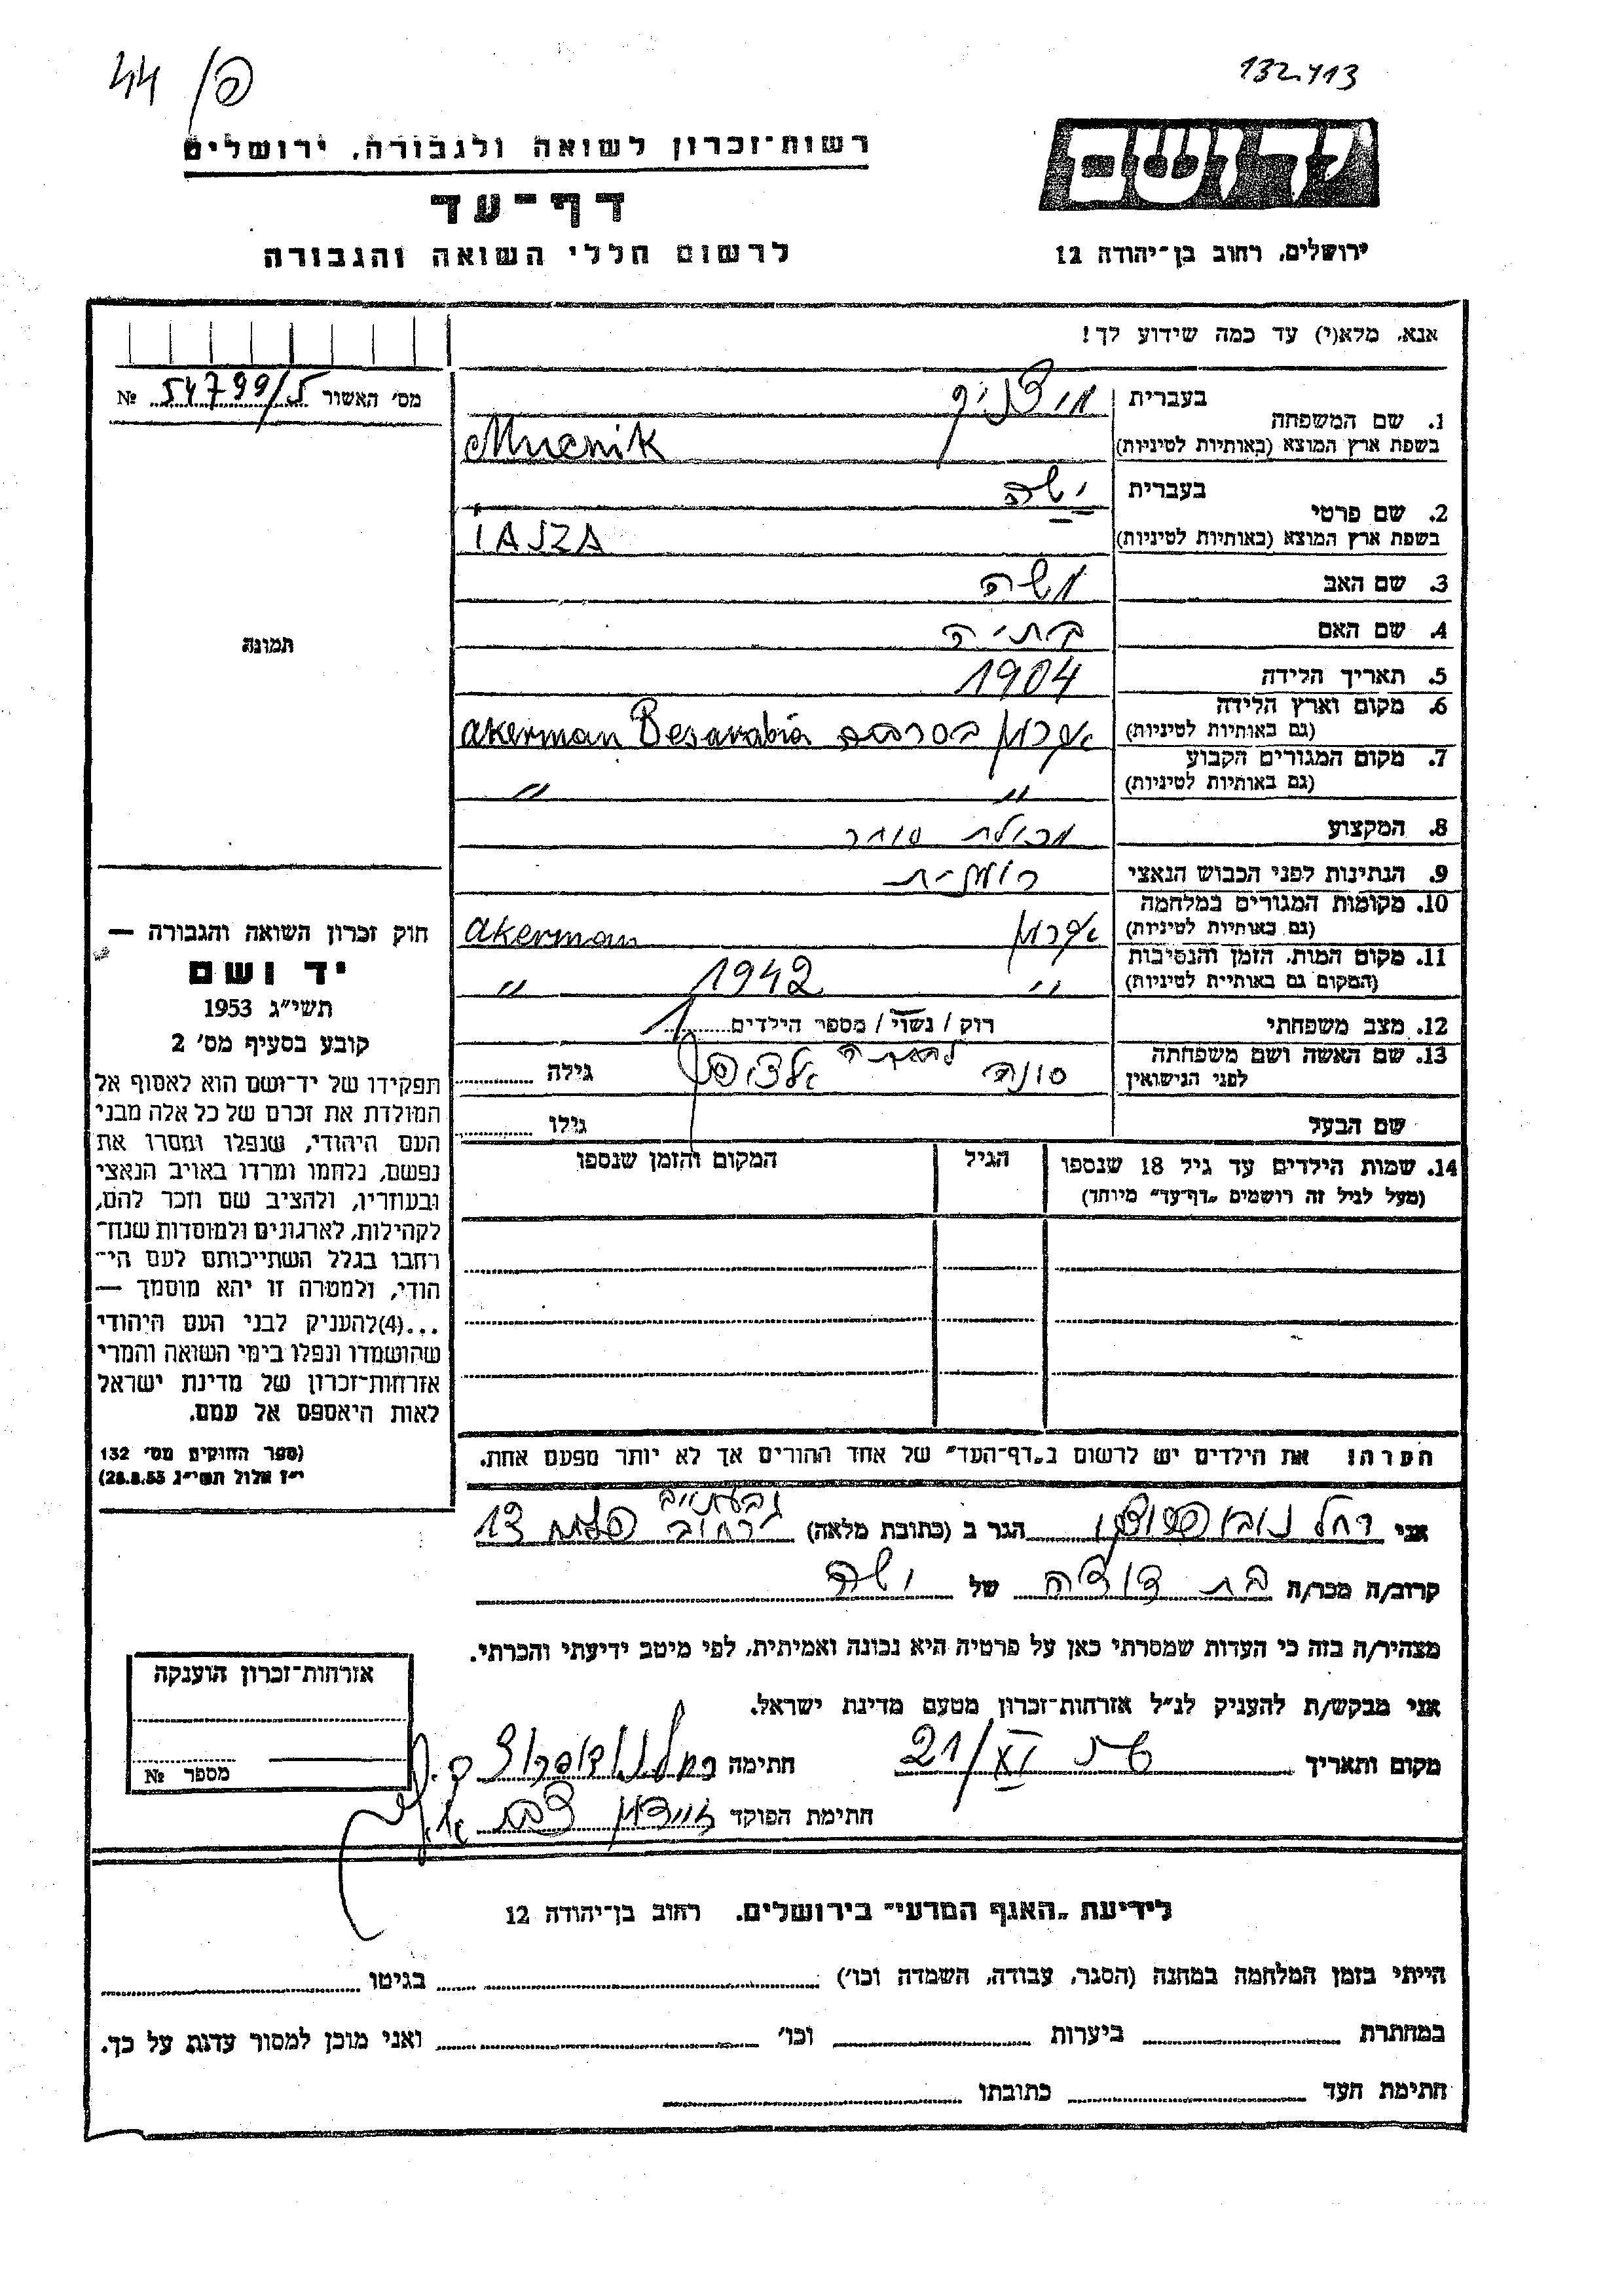 44 פ/
132.413
רשות־זכרון לשואה ולגבורה, ירושלים
דף־עד
לרשום חללי השואה והגבורה
ידושם
ירושלים, רחוב בן־יהודה 12
אנא, מלא(י) עד כמה שידוע לך!
מס' האשור 54799/5 №
1. שם המשפחה
בעברית מוצניק
בשפת ארץ המוצא (באותיות לטיניות) Mucnik
2. שם פרטי
בעברית ישה
בשפת ארץ המוצא (באותיות לטיניות) IAJZA
3. שם האב משה
4. שם האם בתיה
5. תאריך הלידה 1904
6. מקום וארץ הלידה (גם באותיות לטיניות) אקרמן בסרביה Akerman Besarabia
7. מקום המגורים הקבוע (גם באותיות לטיניות) " "
8. המקצוע מכולת סוחר
9. הנתינות לפני הכבוש הנאצי רומנית
10. מקומות המגורים במלחמה (גם באותיות לטיניות) אקרמן Akerman
11. מקום המות, הזמן והנסיבות (המקום גם באותיות לטיניות) " 1942 "
12. מצב משפחתי רוק / נשוי / מספר הילדים 1
13. שם האשה ושם משפחתה לפני הנישואין סוניה גילה
שם הבעל גילו
14. שמות הילדים עד גיל 18 שנספו
(מעל לגיל זה רושמים „דף־עד" מיוחד)
הגיל
המקום והזמן שנספו
הערה! את הילדים יש לרשום ב„דף־העד" של אחד ההורים אך לא יותר מפעם אחת.
תמונה
חוק זכרון השואה והגבורה —
יד ושם
תשי״ג 1953
קובע בסעיף מס' 2
תפקידו של יד־ושם הוא לאסוף אל
המולדת את זכרם של כל אלה מבני
העם היהודי, שנפלו ומסרו את
נפשם, נלחמו ומרדו באויב הנאצי
ובעוזריו, ולהציב שם וזכר להם,
לקהילות, לארגונים ולמוסדות שנח־
רחבו בגלל השתייכותם לעם הי־
הודי, ולמטרה זו יהא מוסמך —
...(4)להעניק לבני העם היהודי
שהושמדו ונפלו בימי השואה והמרי
אזרחות־זכרון של מדינת ישראל
לאות היאספם אל עמם.
(ספר החוקים מס' 132
י״ז אלול תשי״ג 28.8.53)
אני רחל הגר ב (כתובת מלאה) גבעתיים רחוב 13
קרוב/ה מכר/ה בת דודה של ישה
מצהיר/ה בזה כי העדות שמסרתי כאן על פרטיה היא נכונה ואמיתית, לפי מיטב ידיעתי והכרתי.
אני מבקש/ת להעניק לנ״ל אזרחות־זכרון מטעם מדינת ישראל.
מקום ותאריך 21/XI חתימה
חתימת הפוקד
אזרחות־זכרון הוענקה
מספר №
לידיעת „האגף המדעי" בירושלים, רחוב בן־יהודה 12
הייתי בזמן המלחמה במחנה (הסגר, עבודה, השמדה וכו') בגיטו
במחתרת ביערות וכו' ואני מוכן למסור עדות על כך.
חתימת העד כתובתו